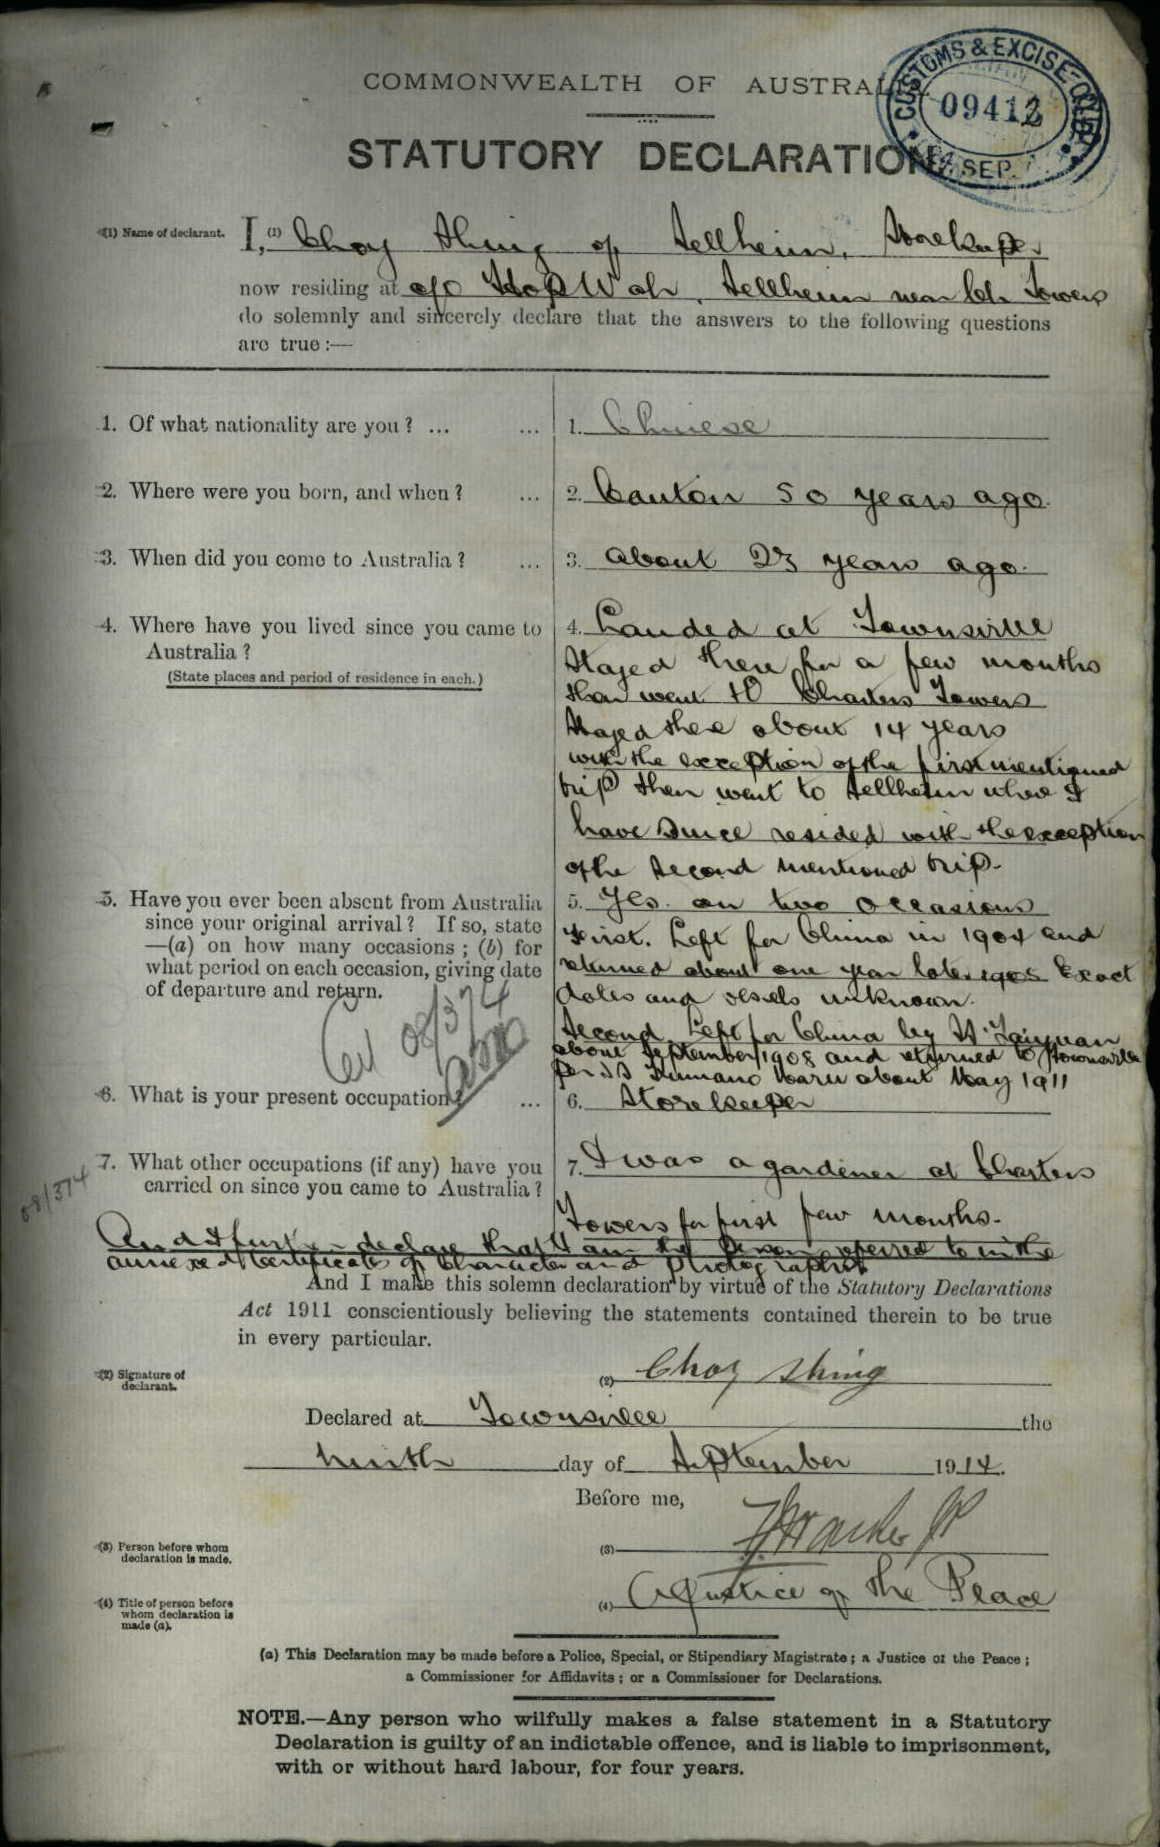 COMMONWEALTH OF AUSTRALIA
CUSTOMS & EXCISE
09412
SEP.
STATUTORY DECLARATION
(1) Name of declarant. I, (1) Choy Shing of Sellheim, Storekeeper
now residing at c/o Hop Wah, Sellheim near Ch Towers
do solemnly and sincerely declare that the answers to the following questions
are true:—
1. Of what nationality are you? ... ... 1. Chinese
2. Where were you born, and when? ... 2. Canton 50 years ago.
3. When did you come to Australia? ... 3. about 23 years ago.
4. Where have you lived since you came to Australia?
(State places and period of residence in each.)
4. Landed at Townsville
Stayed there for a few months
then went to Charters Towers
Stayed there about 14 years
with the exception of the first mentioned
trip then went to Sellheim where I
have since resided with the exception
of the second mentioned trip.
5. Have you ever been absent from Australia
since your original arrival? If so, state
—(a) on how many occasions; (b) for
what period on each occasion, giving date
of departure and return.
5. Yes. on two occasions
First. Left for China in 1904 and
returned about one year later 1905 Exact
dates and vessels unknown.
Second Left for China by SS Taiyuan
about September 1908 and returned to Townsville
per SS Kumano Maru about May 1911
08/374
6. What is your present occupation? ... 6. Storekeeper
7. What other occupations (if any) have you
carried on since you came to Australia?
7. I was a gardener at Charters
Towers for first few months.
08/374
And I further declare that I am the person referred to in the
annexed Certificates of Character and Photographs
And I make this solemn declaration by virtue of the Statutory Declarations
Act 1911 conscientiously believing the statements contained therein to be true
in every particular.
(2) Signature of declarant. (2) Choy Shing
Declared at Townsville the
ninth day of September 1914.
Before me,
(3) Person before whom declaration is made. (3) JP
(4) Title of person before whom declaration is made (a). (4) A Justice of the Peace
(a) This Declaration may be made before a Police, Special, or Stipendiary Magistrate; a Justice of the Peace;
a Commissioner for Affidavits; or a Commissioner for Declarations.
NOTE.—Any person who wilfully makes a false statement in a Statutory
Declaration is guilty of an indictable offence, and is liable to imprisonment,
with or without hard labour, for four years.